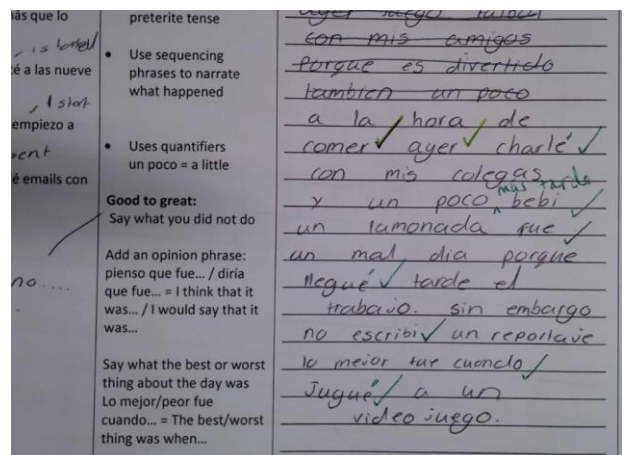 ás que lo
, is bored
é a las nueve
, I start
empiezo a
sent
é emails con
no....
preterite tense
• Use sequencing
phrases to narrate
what happened
• Uses quantifiers
un poco = a little
Good to great:
Say what you did not do
Add an opinion phrase:
pienso que fue... / diría
que fue... = I think that it
was... / I would say that it
was...
Say what the best or worst
thing about the day was
Lo mejor/peor fue
cuando... = The best/worst
thing was when...
ayer juego
con mis amigos
porque es divertido
tambien un poco
a la hora de
comer ayer charlé
con mis colegas
más tarde
y un poco bebi
un lamonada fue
un mal dia porque
llegué tarde el
trabajo. sin embargo
no escribi un reportaje
lo mejor fue cuando
Jugué a un
video juego.